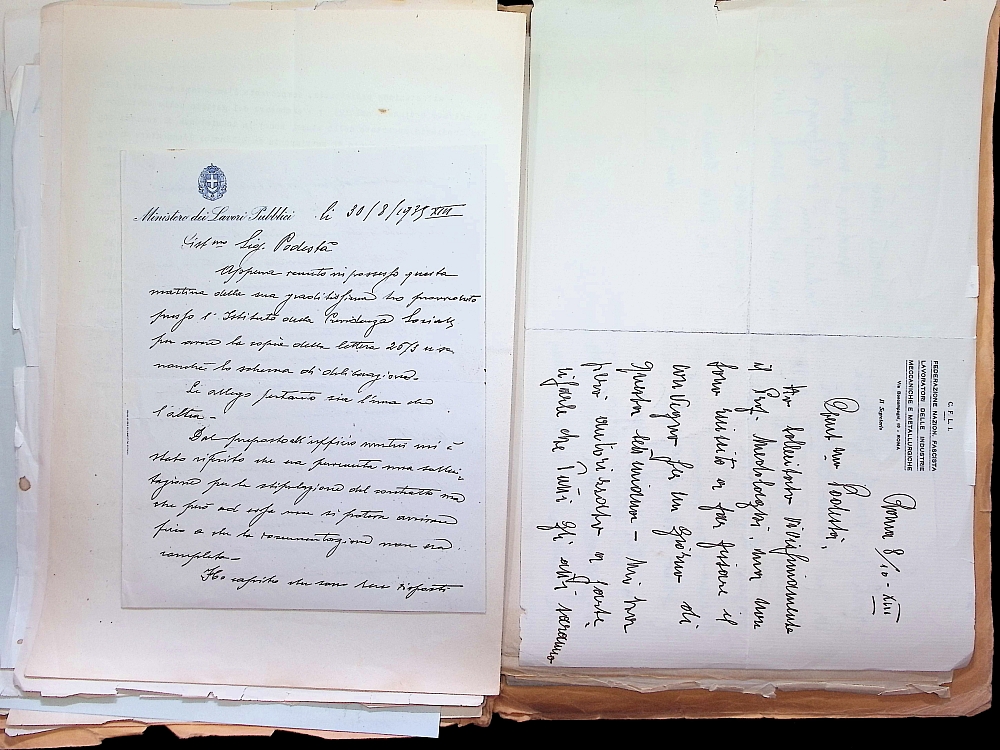 Ministero dei Lavori Pubblici li 30/8/1935 XIII
Sig. Podestà
Appena venuto in possesso questa
mattina della sua graditissima ho provveduto
presso l'Istituto della Previdenza Sociale
per avere la copia della lettera 26/3 u.s.
nonché lo schema di deliberazione.
Le allego pertanto sia l'una che
l'altra.
Dal preposto all'ufficio mutui mi è
stato riferito che era pervenuta una solleci-
tazione per la stipulazione del contratto ma
che però ad essa non si poteva arrivare
fino a che la documentazione non sia
completa.
Ho capito che non sia
C.F.L.I.
FEDERAZIONE NAZION. FASCISTA
LAVORATORI DELLE INDUSTRIE
MECCANICHE E METALLURGICHE
ROMA
Il Segretario
Roma 8/10-XIII
Podestà,
Ho sollecitato vivissimamente
il Prof. Medolaghi, ma non
sono riuscito a far fissare il
convegno per un giorno di
questa settimana - Mi ha
però autorizzato a
che tutti gli atti saranno